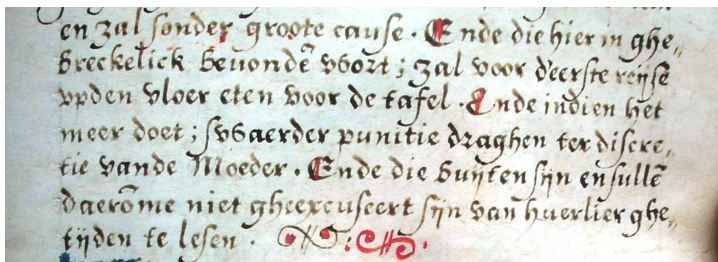 en zal sonder groote cause. Ende die hier in ghe„
breckelick bevondē wort; zal voor d'eerste reijse
vpden vloer eten voor de tafel. Ende indien het
meer doet; swaerder punitie draghen ter discre„
tie vande Moeder. Ende die buijten sijn en sullē
daerōme niet gheexcuseert sijn van huerlier ghe„
tijden te lesen.